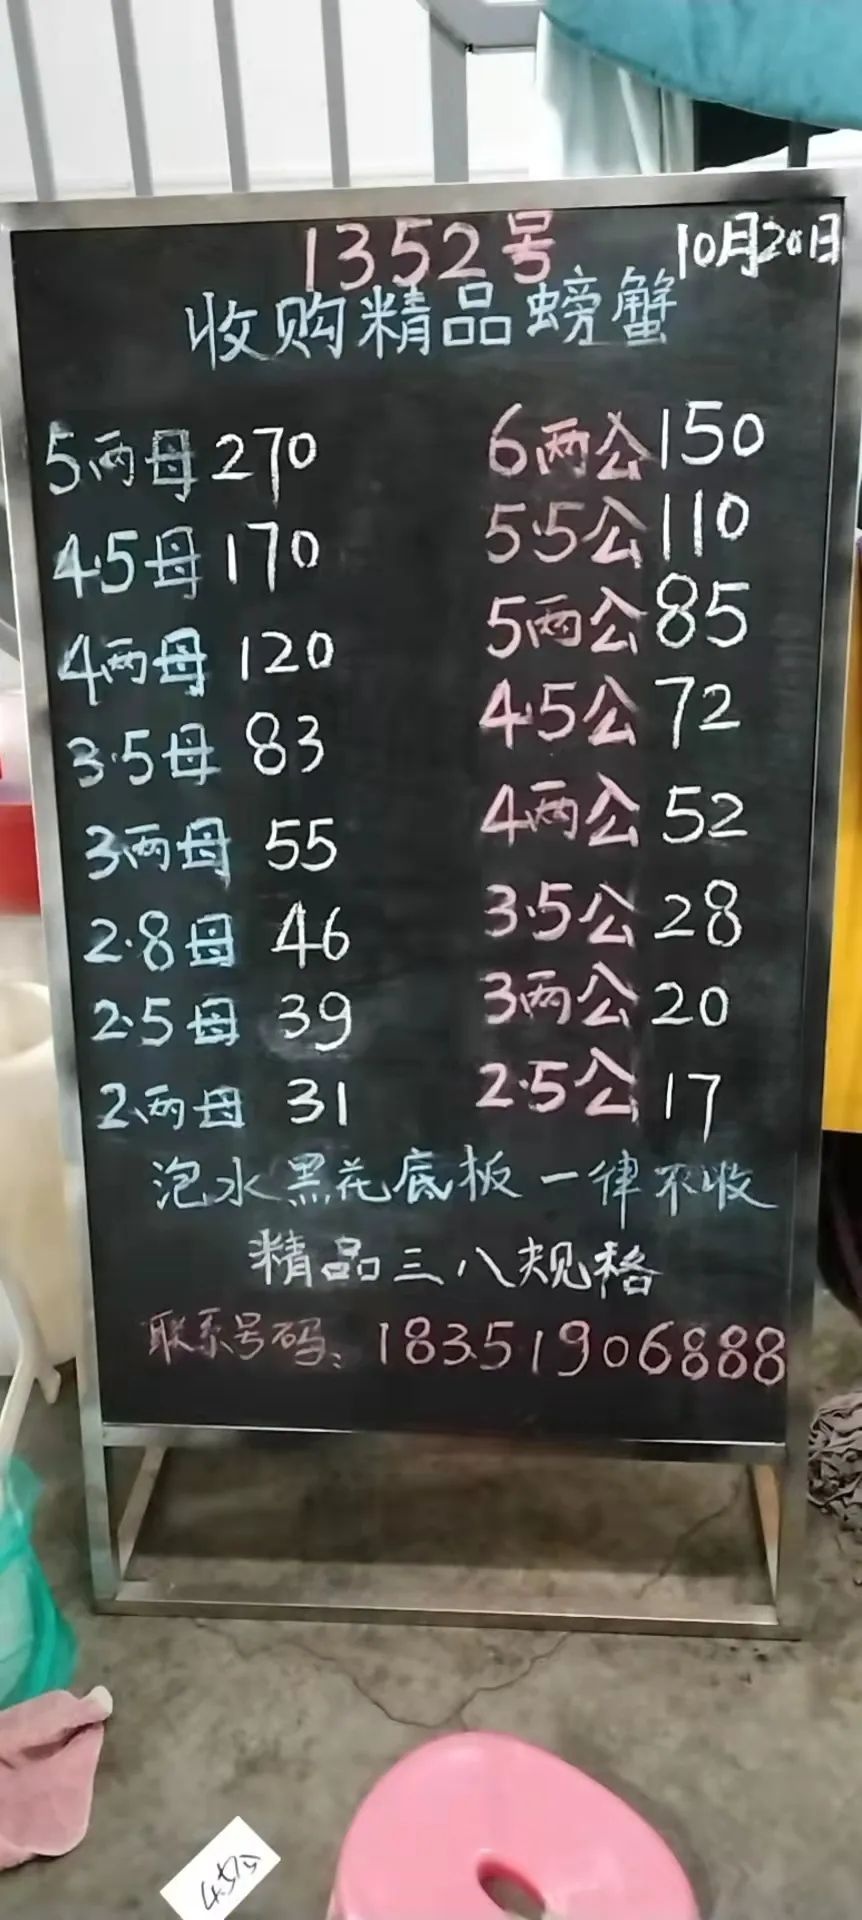 1352号 10月20日
收购精品螃蟹
5两母 270 6两公 150
4.5母 170 5.5公 110
4两母 120 5两公 85
3.5母 83 4.5公 72
3两母 55 4两公 52
2.8母 46 3.5公 28
2.5母 39 3两公 20
2两母 31 2.5公 17
泡水黑花底板一律不收
精品三八规格
联系号码：18351906888